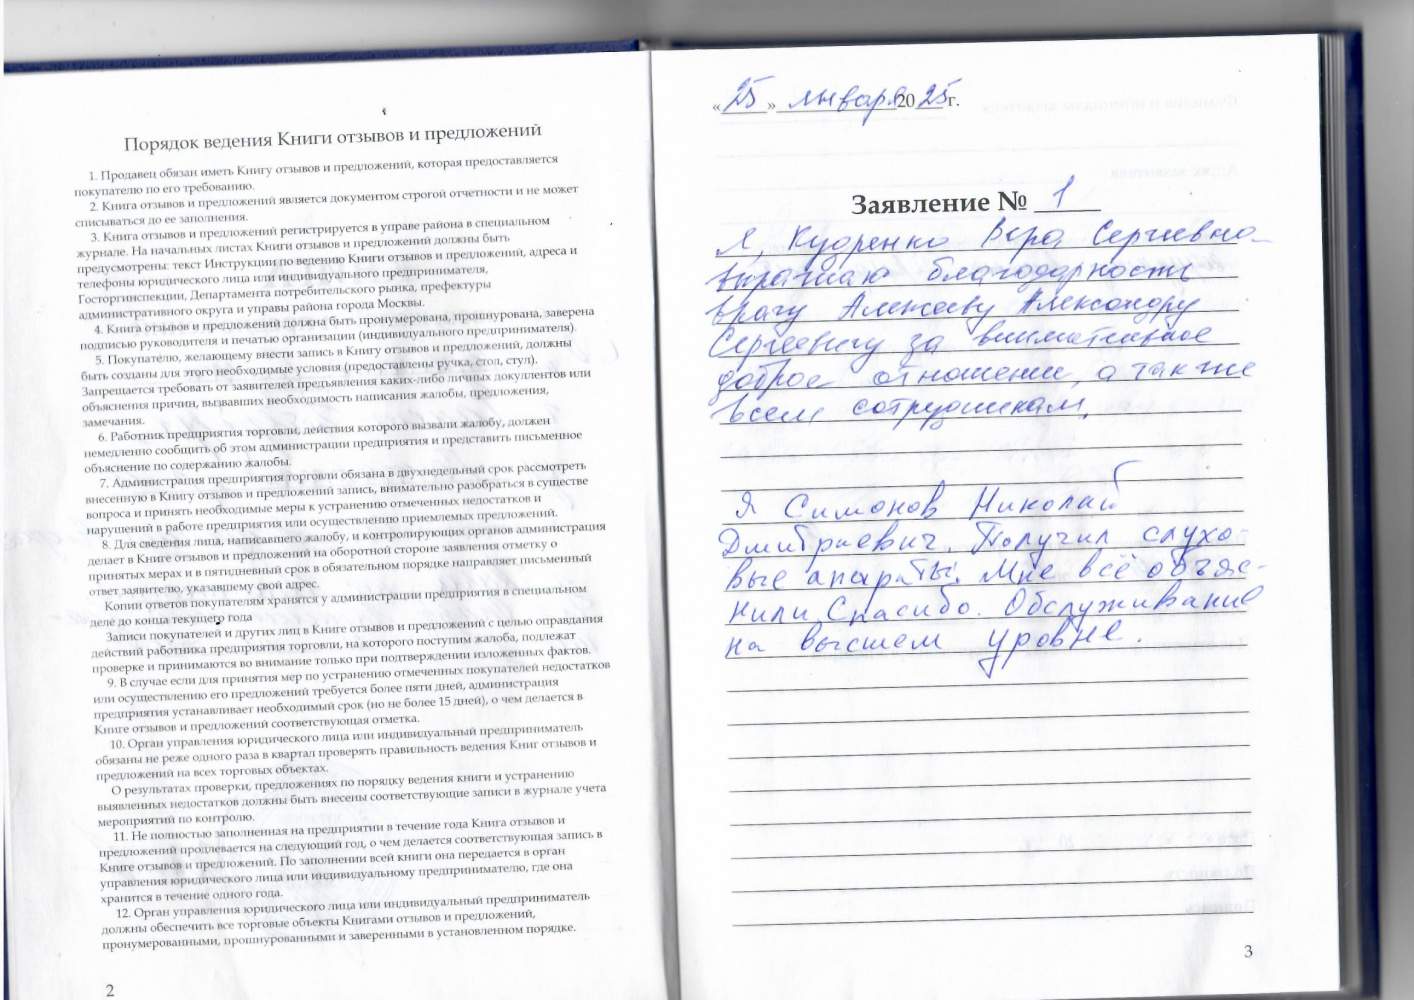 Порядок ведения Книги отзывов и предложений
1. Продавец обязан иметь Книгу отзывов и предложений, которая предоставляется
покупателю по его требованию.
2. Книга отзывов и предложений является документом строгой отчетности и не может
списываться до ее заполнения.
3. Книга отзывов и предложений регистрируется в управе района в специальном
журнале. На начальных листах Книги отзывов и предложений должны быть
предусмотрены: текст Инструкции по ведению Книги отзывов и предложений, адреса и
телефоны юридического лица или индивидуального предпринимателя,
Госторгинспекции, Департамента потребительского рынка, префектуры
административного округа и управы района города Москвы.
4. Книга отзывов и предложений должна быть пронумерована, прошнурована, заверена
подписью руководителя и печатью организации (индивидуального предпринимателя).
5. Покупателю, желающему внести запись в Книгу отзывов и предложений, должны
быть созданы для этого необходимые условия (предоставлены ручка, стол, стул).
Запрещается требовать от заявителей предъявления каких-либо личных докуллентов или
объяснения причин, вызвавших необходимость написания жалобы, предложения,
замечания.
6. Работник предприятия торговли, действия которого вызвали жалобу, должен
немедленно сообщить об этом администрации предприятия и представить письменное
объяснение по содержанию жалобы.
7. Администрация предприятия торговли обязана в двухнедельный срок рассмотреть
внесенную в Книгу отзывов и предложений запись, внимательно разобраться в существе
вопроса и принять необходимые меры к устранению отмеченных недостатков и
нарушений в работе предприятия или осуществлению приемлемых предложений.
8. Для сведения лица, написавшего жалобу, и контролирующих органов администрация
делает в Книге отзывов и предложений на оборотной стороне заявления отметку о
принятых мерах и в пятидневный срок в обязательном порядке направляет письменный
ответ заявителю, указавшему свой адрес.
Копии ответов покупателям хранятся у администрации предприятия в специальном
деле до конца текущего года
Записи покупателей и других лиц в Книге отзывов и предложений с целью оправдания
действий работника предприятия торговли, на которого поступим жалоба, подлежат
проверке и принимаются во внимание только при подтверждении изложенных фактов.
9. В случае если для принятия мер по устранению отмеченных покупателей недостатков
или осуществлению его предложений требуется более пяти дней, администрация
предприятия устанавливает необходимый срок (но не более 15 дней), о чем делается в
Книге отзывов и предложений соответствующая отметка.
10. Орган управления юридического лица или индивидуальный предприниматель
обязаны не реже одного раза в квартал проверять правильность ведения Книг отзывов и
предложений на всех торговых объектах.
О результатах проверки, предложениях по порядку ведения книги и устранению
выявленных недостатков должны быть внесены соответствующие записи в журнале учета
мероприятий по контролю.
11. Не полностью заполненная на предприятии в течение года Книга отзывов и
предложений продлевается на следующий год, о чем делается соответствующая запись в
Книге отзывов и предложений. По заполнении всей книги она передается в орган
управления юридического лица или индивидуальному предпринимателю, где она
хранится в течение одного года.
12. Орган управления юридического лица или индивидуальный предприниматель
должны обеспечить все торговые объекты Книгами отзывов и предложений,
пронумерованными, прошнурованными и заверенными в установленном порядке.
2
«25» января 2025 г.
Заявление № 1
Я, Кудренко Вера Сергеевна
выражаю благодарность
врачу Алексееву Александру
Сергеевичу за внимательное
доброе отношение, а также
всем сотрудникам.
Я Симонов Николай
Дмитриевич. Получил слухо-
вые апараты. Мне всё объяс-
нили. Спасибо. Обслуживание
на высшем уровне.
3